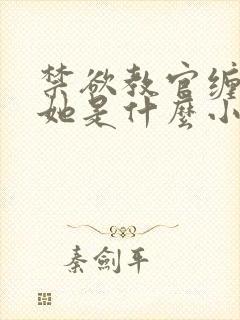 禁欲教官缠
她是什麼小
秦剑平